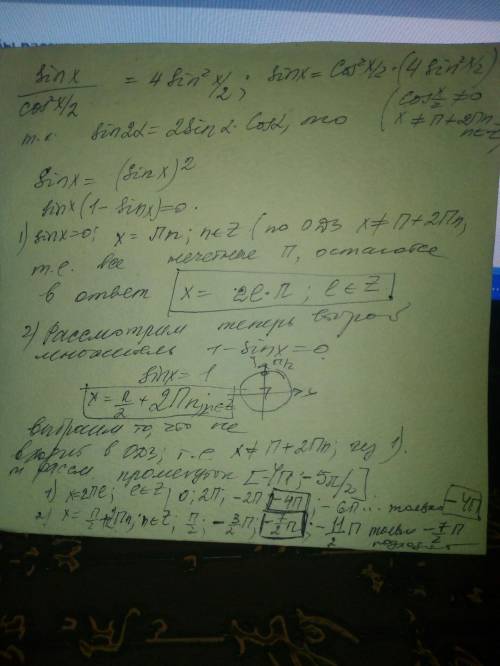 sinx / cos²x/2 = 4 sin² x/2 ; sinx = cos²x/2 · (4 sin²x/2)
(cos x/2 ≠ 0
т.к. sin2α = 2sinα · cosα, то
x ≠ π + 2πn
n∈Z)
sinx = (sinx)²
sinx(1 - sinx) = 0.
1) sinx=0; x = πn; n∈Z (по ОДЗ x ≠ π + 2πn,
т.е. все нечетные π, остаются
в ответ x = 2ℓ·π ; ℓ∈Z
2) Рассмотрим теперь второй
множитель 1 - sinx = 0
sinx = 1
π/2
x
x = π/2 + 2πn; n∈Z
выбраем то, что не
в ОДЗ; т.е. x ≠ π + 2πn; из 1).
и рассм промежуток [-4π; -5π/2]
1) x=2πℓ; ℓ∈Z; 0; 2π; -2π; -4π; -6π... только -4π
2) x = π/2 + 2πn; n∈Z; π/2; -3/2π; -7/2π; -11/2π только -7/2π
подходит